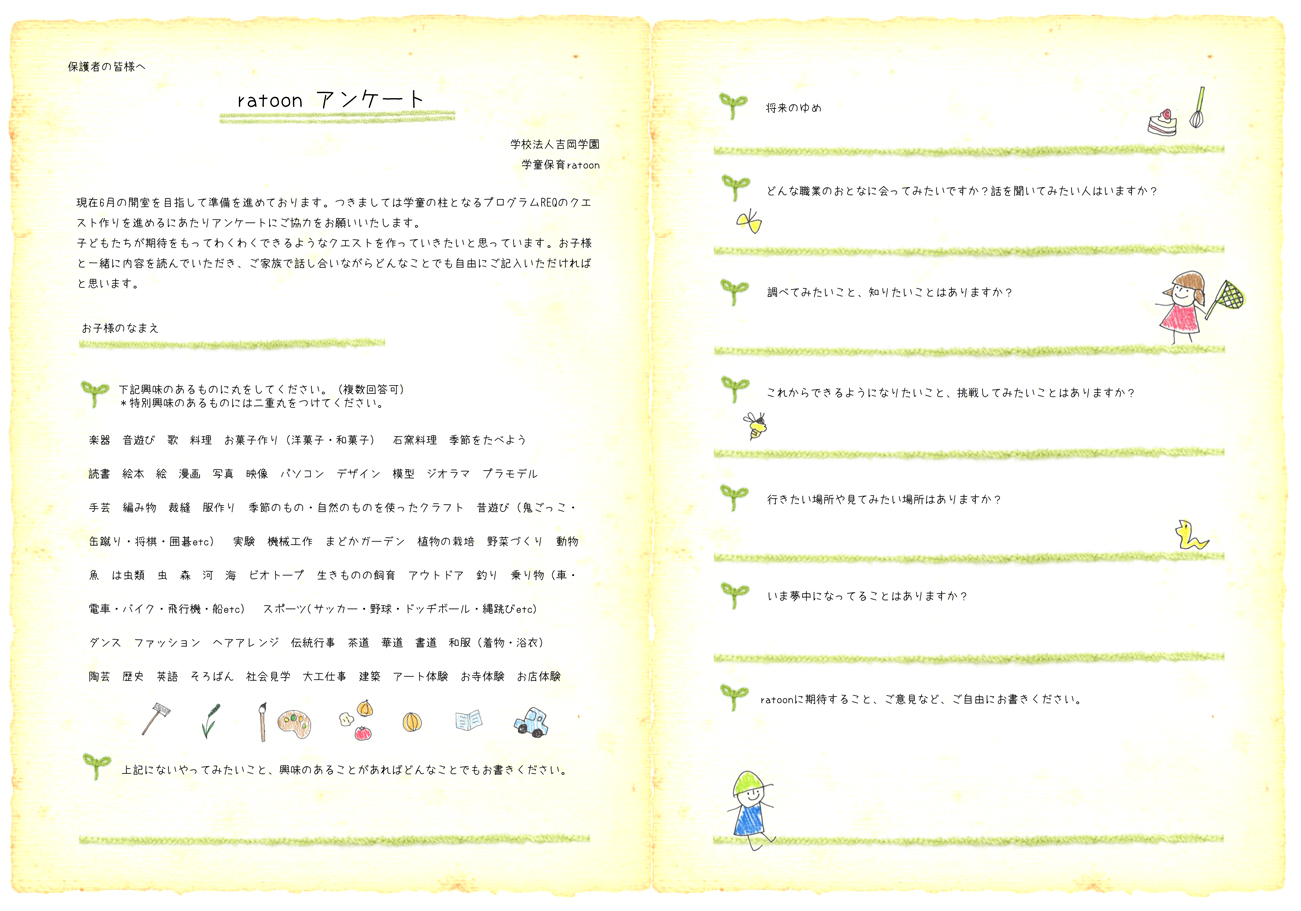 保護者の皆様へ
ratoon アンケート
学校法人吉岡学園
学童保育ratoon
現在6月の開室を目指して準備を進めております。つきましては学童の柱となるプログラムREQのクエ
スト作りを進めるにあたりアンケートにご協力をお願いいたします。
子どもたちが期待をもってわくわくできるようなクエストを作っていきたいと思っています。お子様
と一緒に内容を読んでいただき、ご家族で話し合いながらどんなことでも自由にご記入いただければ
と思います。
お子様のなまえ
下記興味のあるものに丸をしてください。（複数回答可）
＊特別興味のあるものには二重丸をつけてください。
楽器　音遊び　歌　料理　お菓子作り（洋菓子・和菓子）　石窯料理　季節をたべよう
読書　絵本　絵　漫画　写真　映像　パソコン　デザイン　模型　ジオラマ　プラモデル
手芸　編み物　裁縫　服作り　季節のもの・自然のものを使ったクラフト　昔遊び（鬼ごっこ・
缶蹴り・将棋・囲碁etc）　実験　機械工作　まどかガーデン　植物の栽培　野菜づくり　動物
魚　は虫類　虫　森　河　海　ビオトープ　生きものの飼育　アウトドア　釣り　乗り物（車・
電車・バイク・飛行機・船etc）　スポーツ(サッカー・野球・ドッヂボール・縄跳びetc)
ダンス　ファッション　ヘアアレンジ　伝統行事　茶道　華道　書道　和服（着物・浴衣）
陶芸　歴史　英語　そろばん　社会見学　大工仕事　建築　アート体験　お寺体験　お店体験
上記にないやってみたいこと、興味のあることがあればどんなことでもお書きください。
将来のゆめ
どんな職業のおとなに会ってみたいですか？話を聞いてみたい人はいますか？
調べてみたいこと、知りたいことはありますか？
これからできるようになりたいこと、挑戦してみたいことはありますか？
行きたい場所や見てみたい場所はありますか？
いま夢中になってることはありますか？
ratoonに期待すること、ご意見など、ご自由にお書きください。